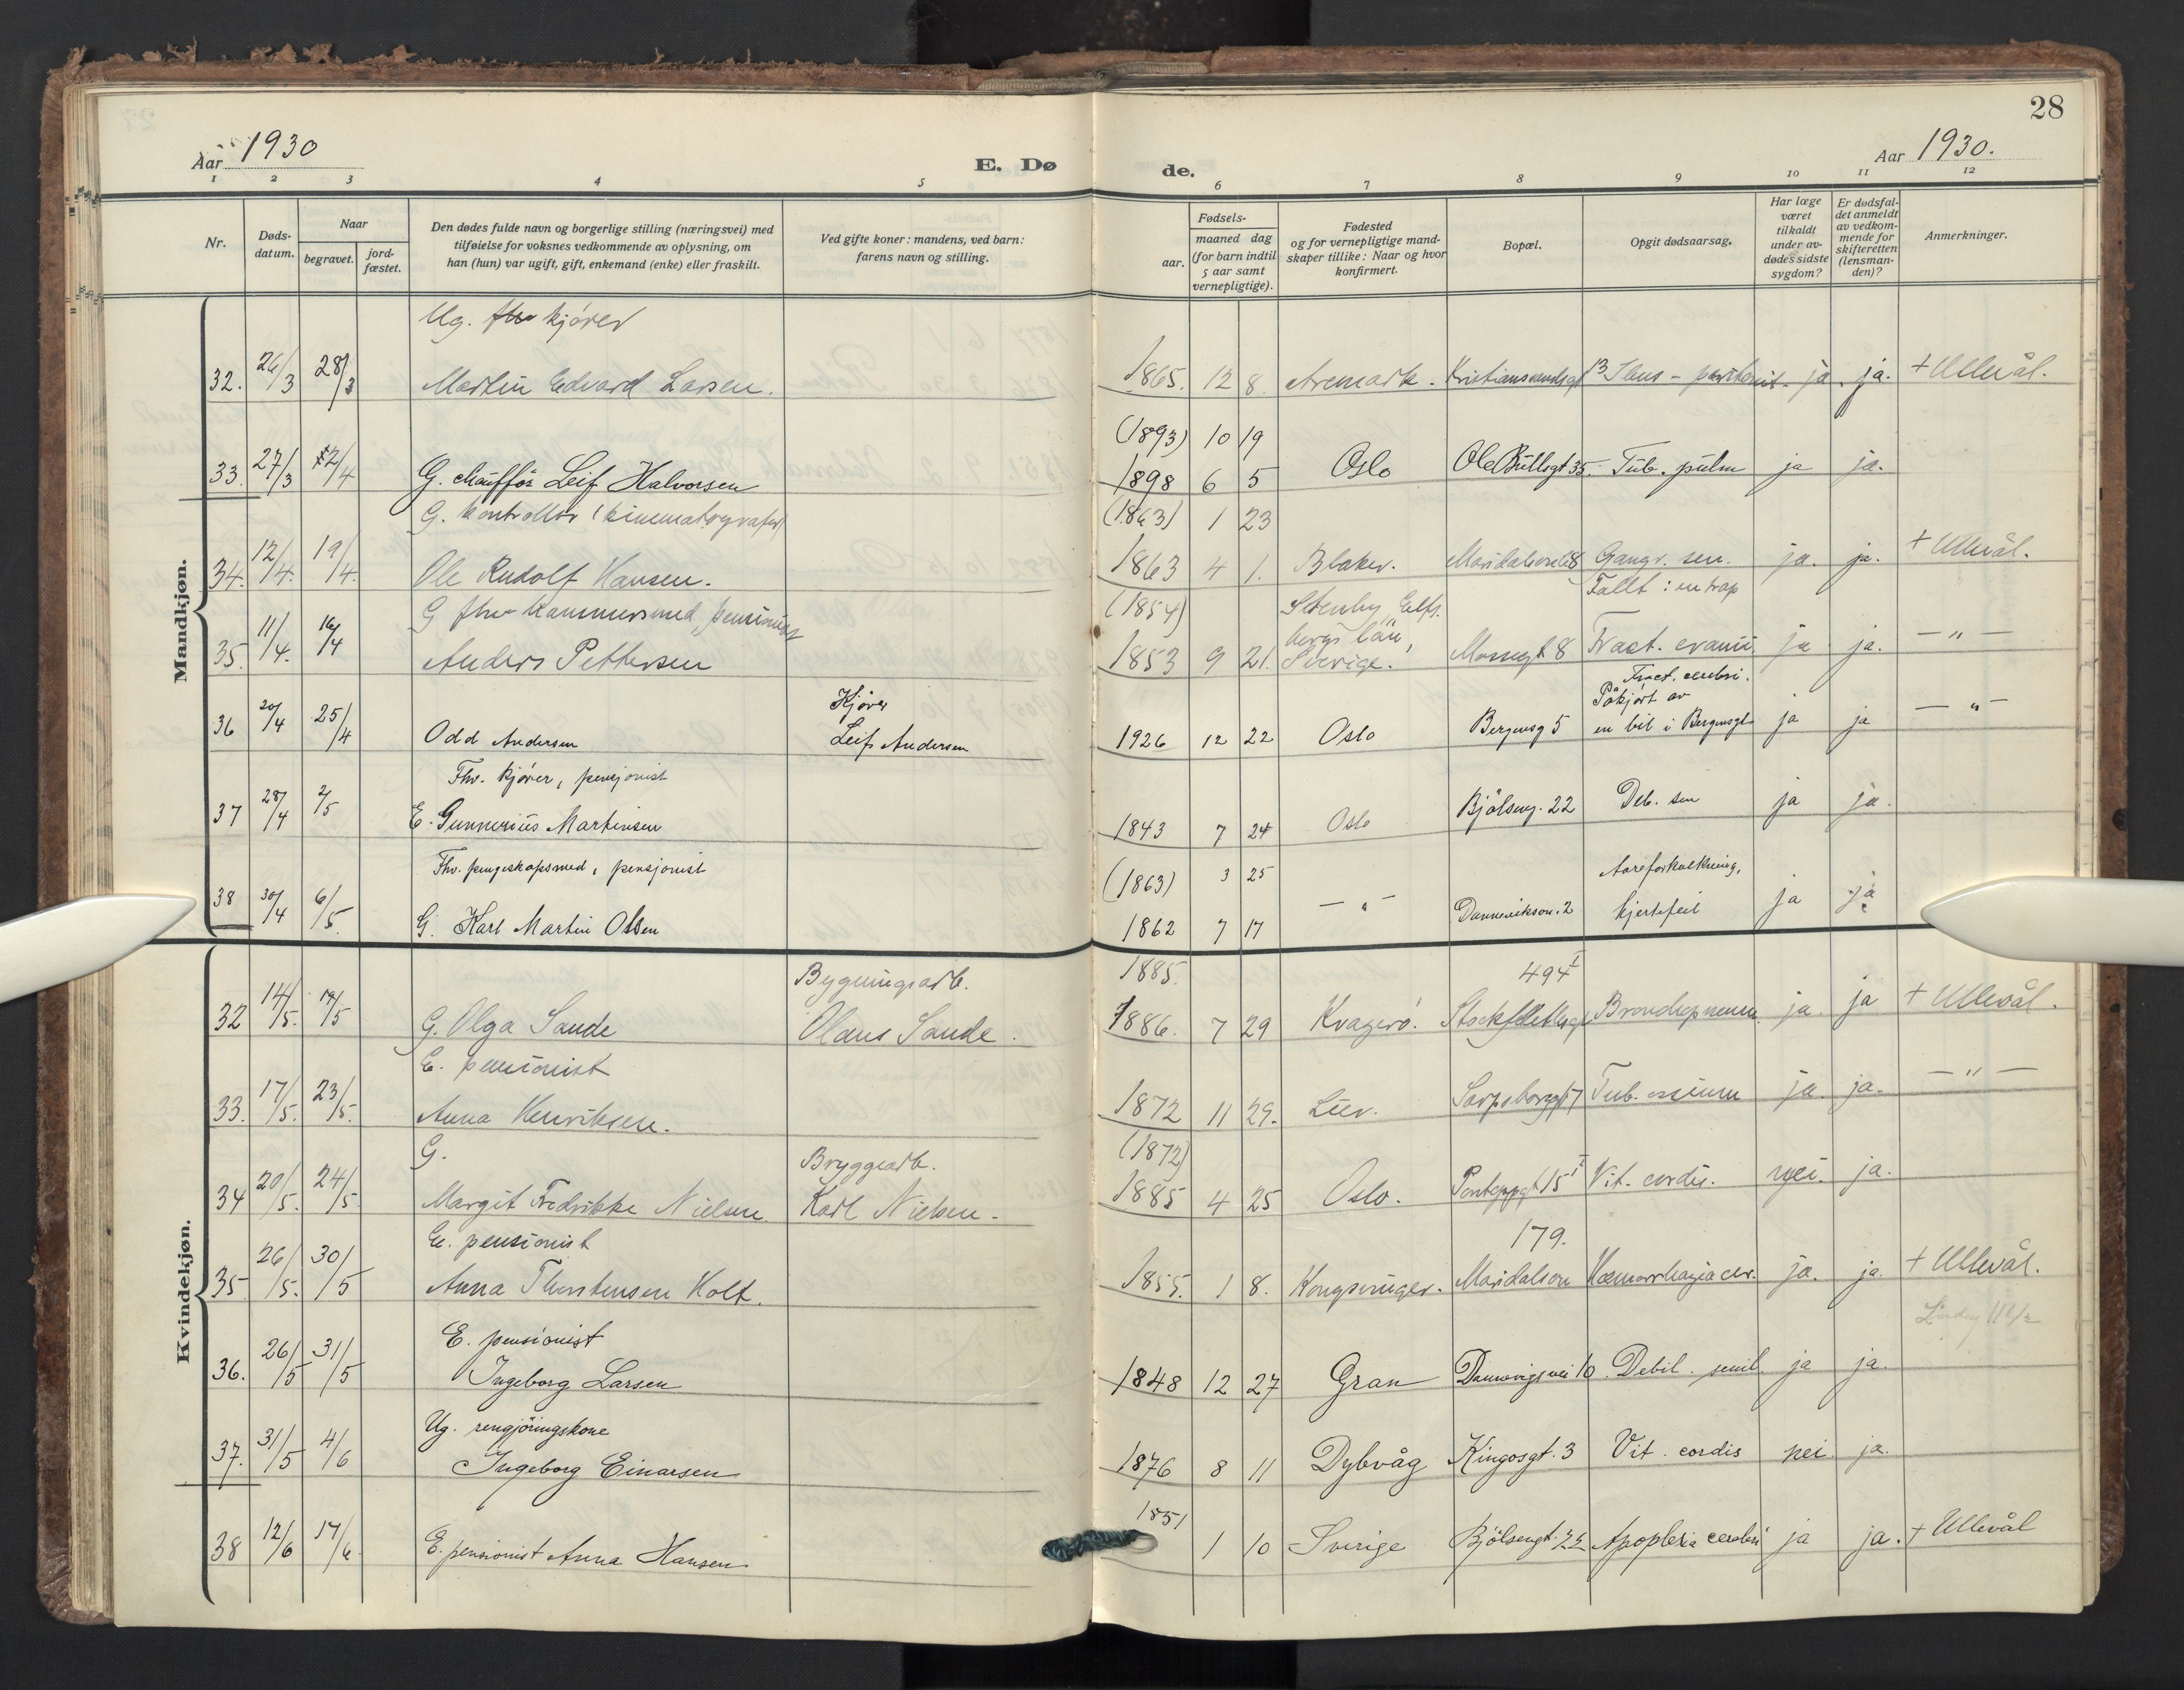 28
Aar 1930
E. Dø de.
Aar 1930.
1 2 3 4 5 6 7 8 9 10 11 12
Nr.
Døds-
datum.
Naar
begravet.
jord-
fæstet.
Den dødes fulde navn og borgerlige stilling (næringsvei) med
tilføielse for voksnes vedkommende av oplysning, om
han (hun) var ugift, gift, enkemand (enke) eller fraskilt.
Ved gifte koner: mandens, ved barn:
farens navn og stilling.
Fødsels-
aar.
maaned dag
(for barn indtil
5 aar samt
vernepligtige).
Fødested
og for vernepligtige mand-
skaper tillike: Naar og hvor
konfirmert.
Bopæl.
Opgit dødsaarsag.
Har læge
været
tilkaldt
under av-
dødes sidste
sygdom?
Er dødsfal-
det anmeldt
av vedkom-
mende for
skifteretten
(lensman-
den)?
Anmerkninger.
Mandkjøn.
Ug. kjører
32. 26/3 28/3 Martin Edvard Larsen. 1865. 12 8 Aremark. Kristiansandsgt 13 Ileus - peritonit. ja. ja. + Ullevål.
(1893) 10 19
33. 27/3 2/4 G. chauffør Leif Halvorsen 1898 6 5 Oslo Ole Bullsgt 35. Tub. pulm ja ja.
G. kontrollør (kinematografer) (1863) 1 23
34. 12/4. 19/4. Ole Rudolf Hansen. 1863 4 1. Blaker. Maridalsvei 68 Gangr. sen. ja. ja. + Ullevål.
G. fhv hammersmed, pensionist (1854) Fallt i en trap
35. 11/4. 16/4 Anders Pettersen 1853 9 21. län, Sverige. Mossegt 8 Fract. cranii. ja ja. — " —
Kjører Fract. cerebri.
Påkjørt av
36 20/4 25/4 Odd Andersen Leif Andersen 1926 12 22 Oslo Bergensg 5 en bil i Bergensgt ja ja — " —
Fhv. kjører, pensjonist
37 28/4 2/5 E. Gunnerius Martinsen 1843 7 24 Oslo Bjølseng. 22 Deb. sen ja ja.
Fhv. pengeskapsmed, pensjonist (1863) 3 25 Aareforkalkning,
38 30/4 6/5. G. Karl Martin Olsen 1862 7 17 — " — Dannevikson. 2 hjertefeil ja ja
Kvindekjøn.
Bygningsarb. 1885. 494 I
32 14/5. 19/5 G. Olga Sande Olaus Sande. 1886. 7 29 Kragerø. Stockflethsgt Bronchopneum. ja. ja + Ullevål.
E. pensionist
33. 17/5. 23/5. Anna Henriksen. 1872 11 29. Lier. Sarpsborggt 7 Tub. ossium ja. ja. — " —
G. Bryggearb. (1872)
34 20/5. 24/5. Margit Fredrikke Nielsen. Karl Nielsen. 1885 4 25 Oslo. Pontoppgt 15 I Vit. cordis. nei. ja.
E. pensionist 179.
35 26/5. 30/5 Anna Thorstensen Holt. 1855. 1 8. Kongsvinger. Maridalsvn Hæmorrhagia cer. ja. ja. + Ullevål.
E. pensionist
36. 26/5 31/5 Ingeborg Larsen 1848 12 27 Gran Dannevigsvei 10. Debil. senil. ja ja.
Ug. rengjøringskone
37. 31/5 4/6 Ingeborg Einarsen 1876 8 11 Dybvåg Kingosgt. 3 Vit. cordis nei ja.
1851
38 12/6 17/6. E. pensionist Anna Hansen 1 10 Sverige Bjølsengt. 22 Apoplexia cerebri ja ja. + Ullevål